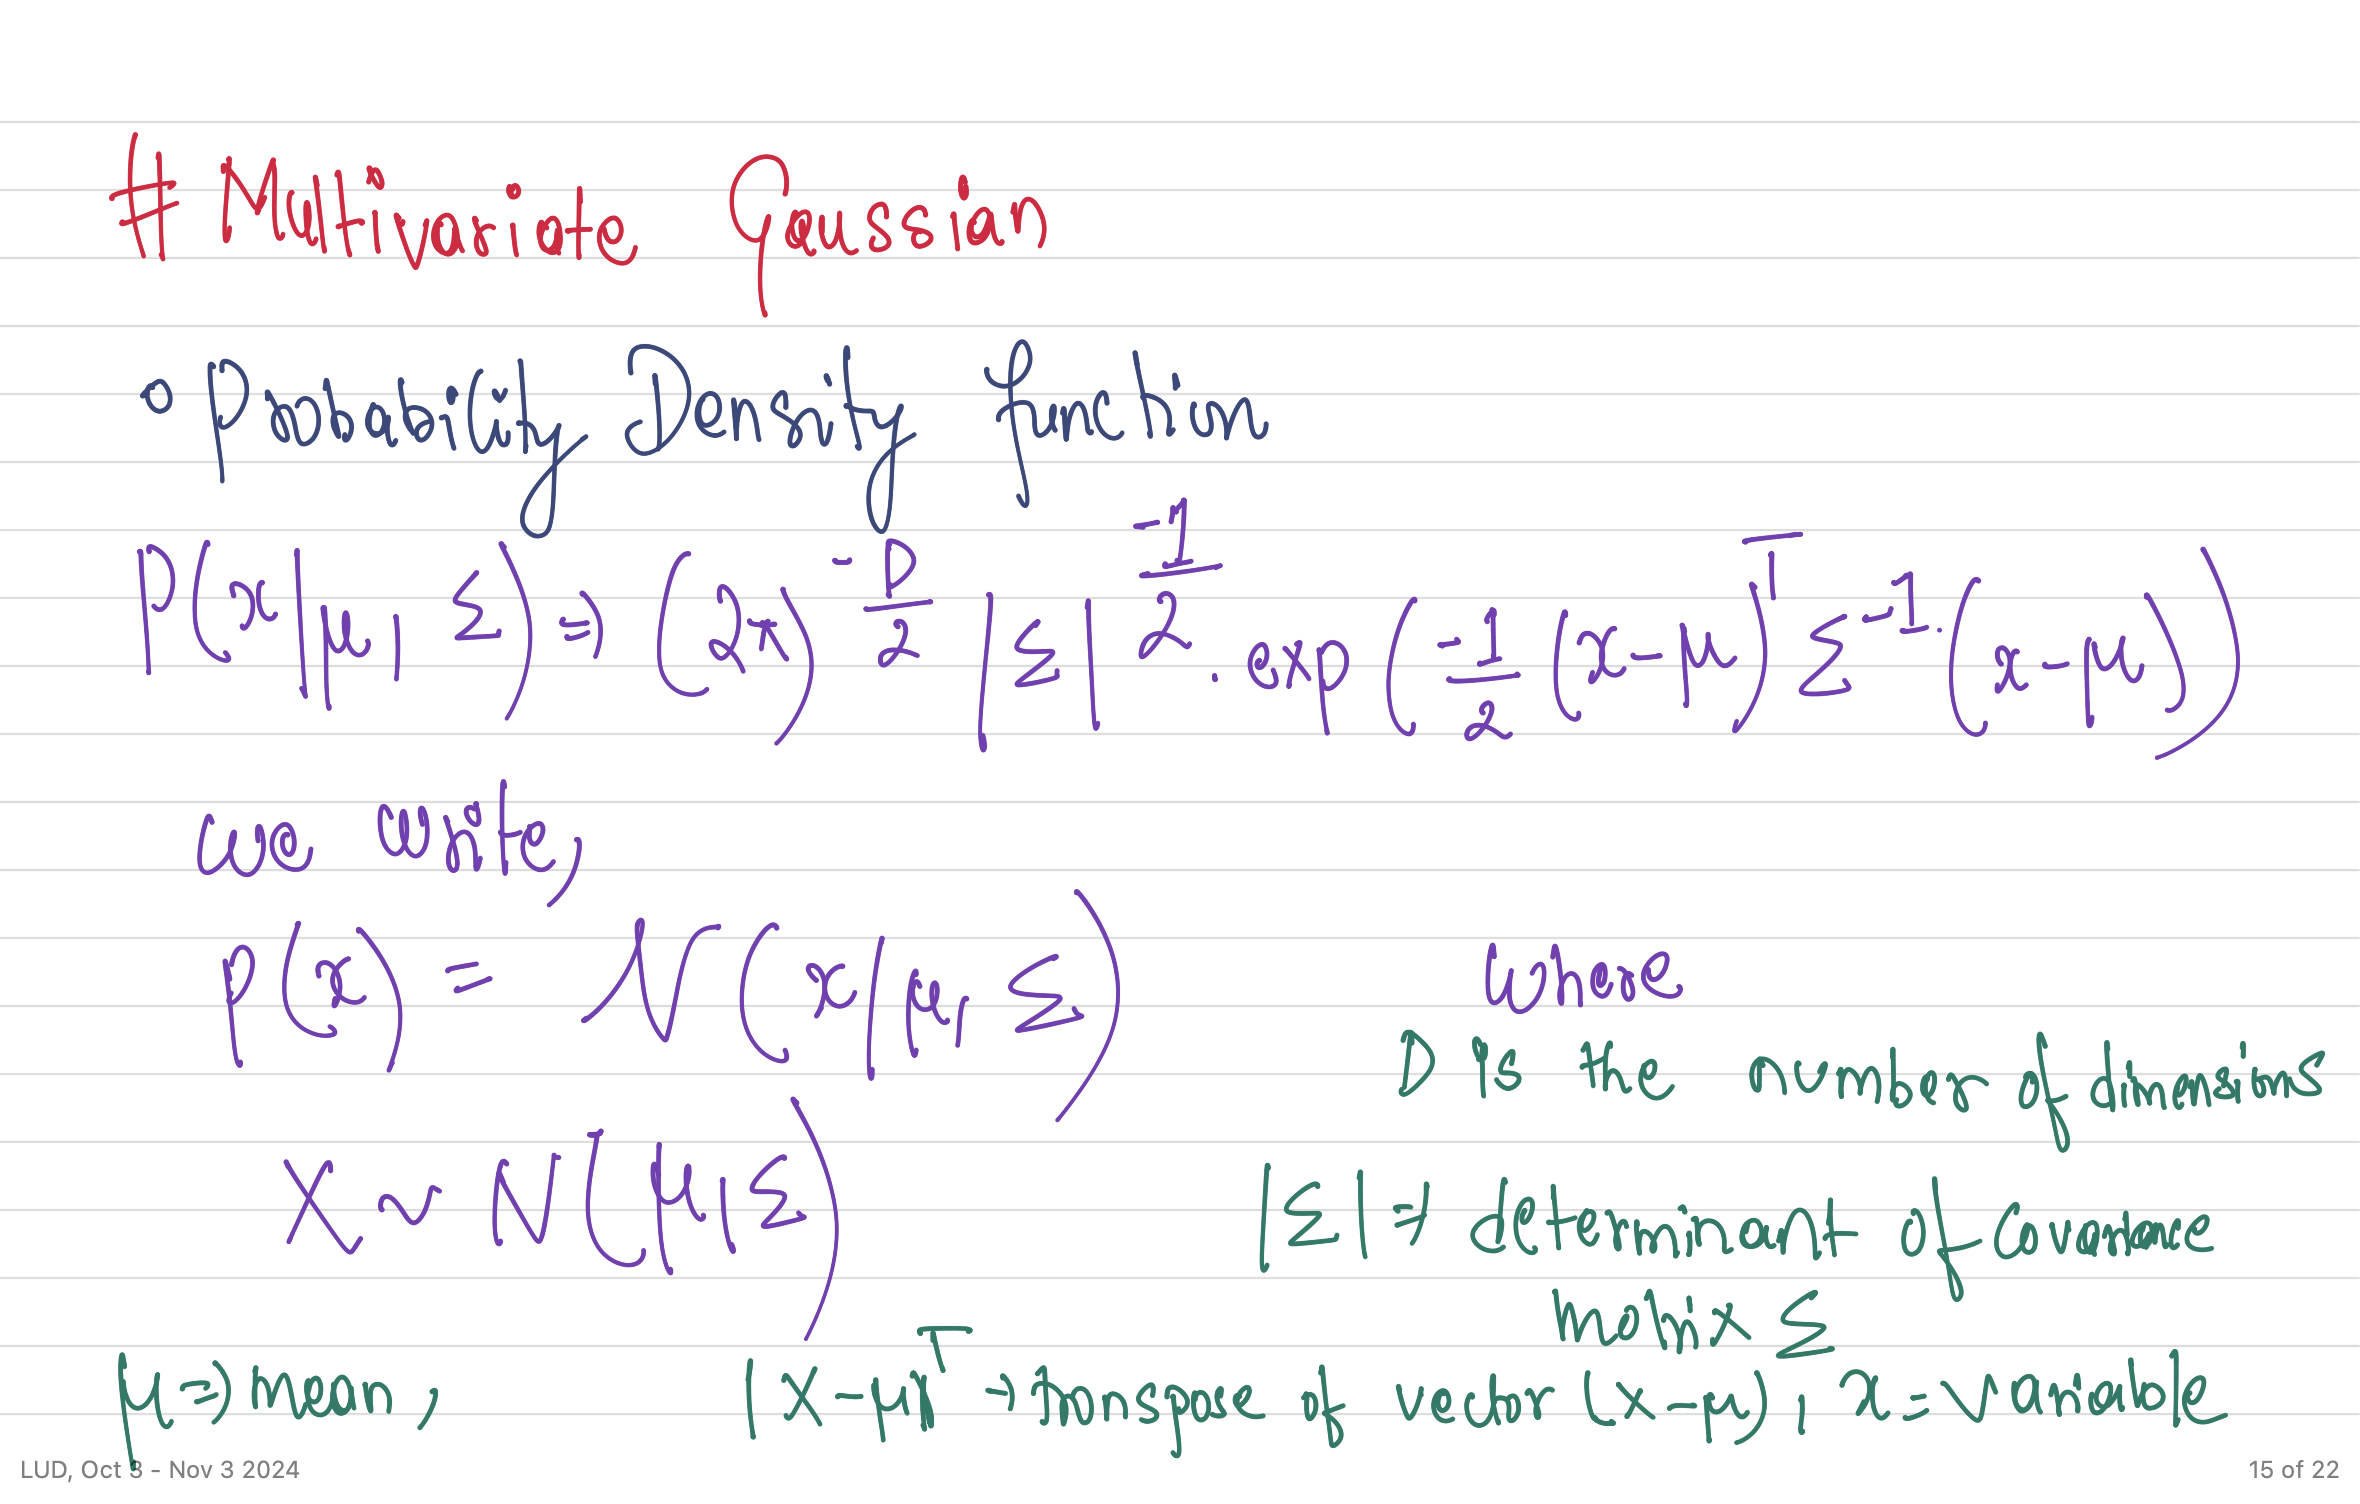 # Multivariate Gaussian
o Probability Density function
P(x|μ, Σ) ⇒ (2π)^(-D/2) |Σ|^(-1/2) . exp(-1/2 (x-μ)^T Σ^-1 . (x-μ))
we write,
P(x) = N(x|μ, Σ)
where
D is the number of dimensions
X ~ N(μ, Σ)
|Σ| ⇒ determinant of covariance
matrix Σ
μ ⇒ mean, (x-μ)^T → transpose of vector (x-μ), x = variable
LUD, Oct 3 - Nov 3 2024
15 of 22